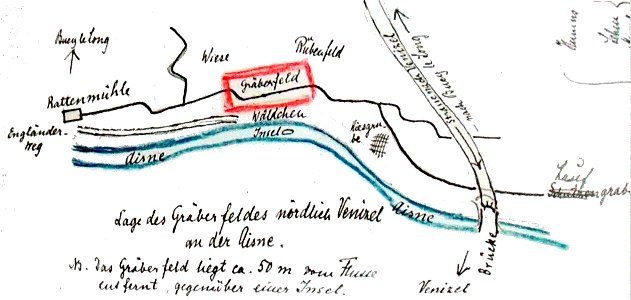 Bucy le long
Wiese
Rübenfeld
Gräberfeld
Rattenmühle
Engländer-
weg
Wäldchen
Insel
Kiesgru-
be
Aisne
Aisne
Strasse nach Venizel
nach Bucy le long
Brücke
Venizel
Lage des Gräberfeldes nördlich Venizel
an der Aisne.
NB. Das Gräberfeld liegt ca. 50 m vom Flusse
entfernt, gegenüber einer Insel.